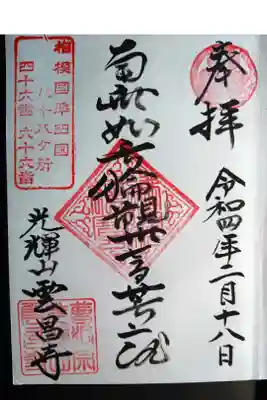 奉拝
令和四年二月十八日
南無如意輪觀世音菩薩
相模國準四国
八十八ヶ所
四十六番 六十六番
光輝山雲昌寺